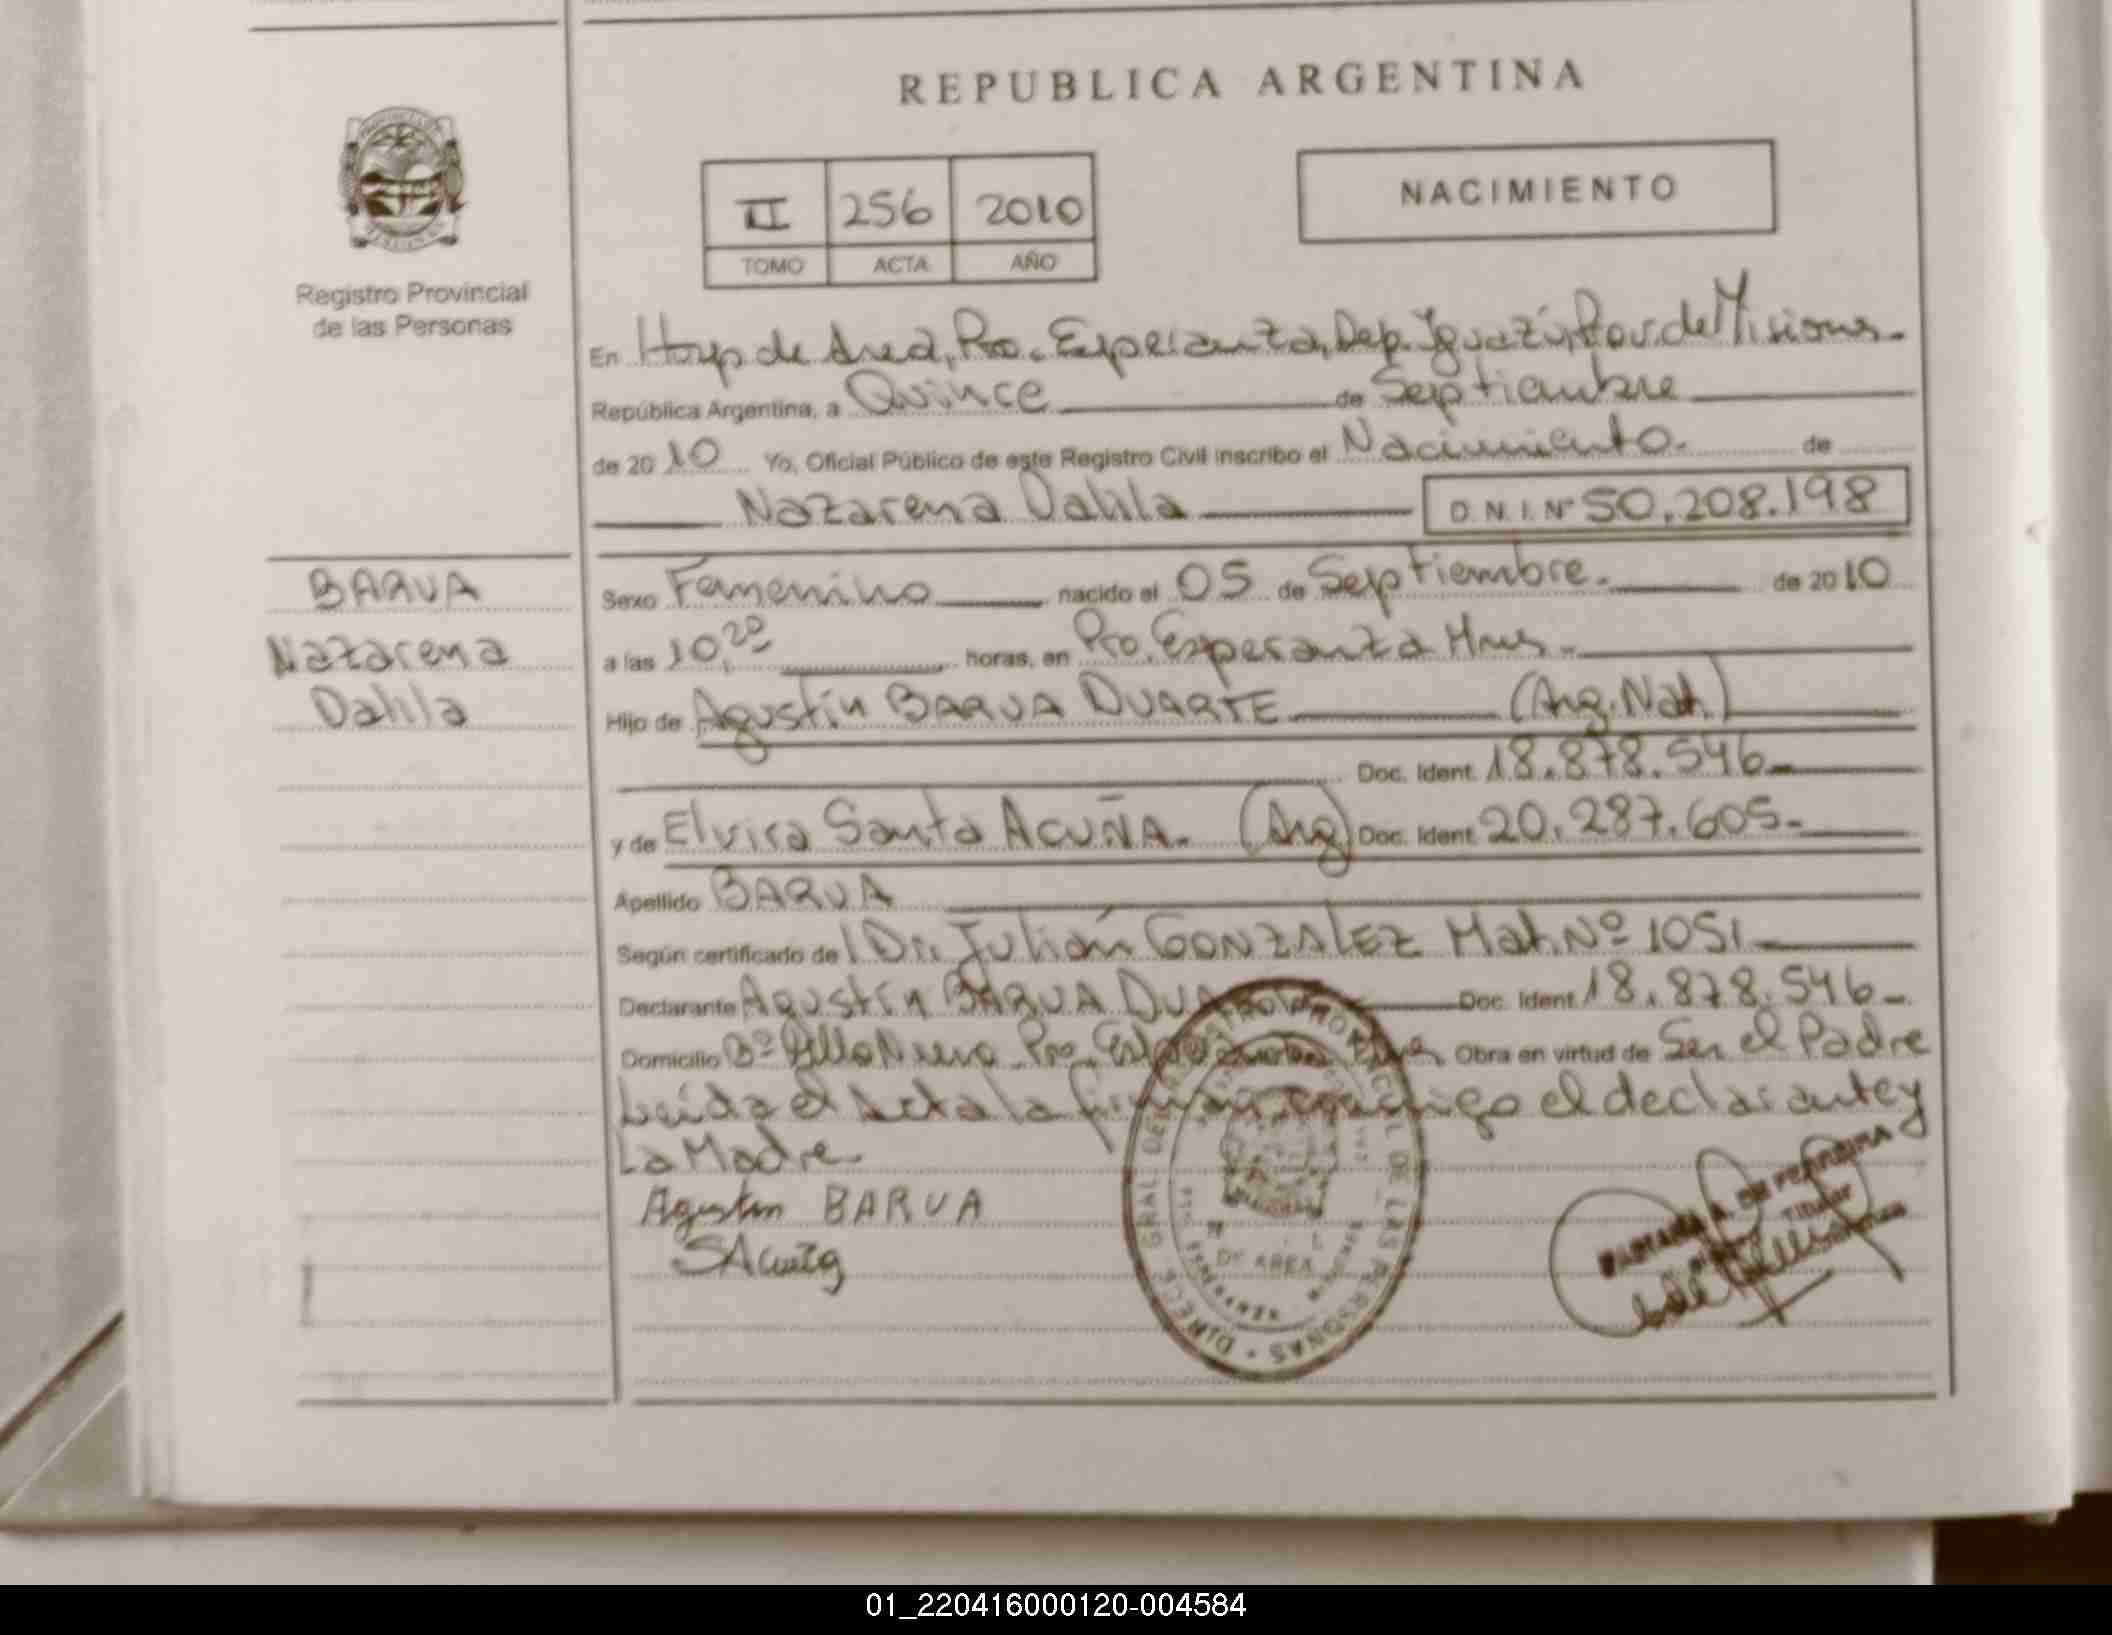 REPUBLICA ARGENTINA
II 256 2010
TOMO ACTA AÑO
NACIMIENTO
Registro Provincial
de las Personas
En Hosp de Area, Pto. Esperanza, Dep. Iguazú, Prov. de Misiones.
República Argentina, a Quince de Septiembre
de 2010 Yo, Oficial Público de este Registro Civil inscribo el Nacimiento. de
Nazarena Dalila D.N.I. Nº 50.208.198
BARUA
Nazarena
Dalila
Sexo Femenino nacido el 05 de Septiembre. de 2010
a las 10,20 horas, en Pto. Esperanza Mnes.
Hijo de Agustín BARUA DUARTE (Arg. Nat.)
Doc. Ident. 18.878.546
y de Elvira Santa ACUÑA. (Arg) Doc. Ident. 20.287.605.
Apellido BARUA
Según certificado de Dr. Julián GONZALEZ Mat. Nº 1051
Declarante Agustín BARUA Doc. Ident. 18.878.546
Domicilio Bº Villa Nueva Pto. Obra en virtud de Ser el Padre
Leída el Acta la firman conmigo el declarante y
La Madre.
Agustin BARUA
SAcuña
DIRECC. GRAL DEL REGISTRO PROVINCIAL DE LAS PERSONAS
DE AREA
TITULAR
01_220416000120-004584